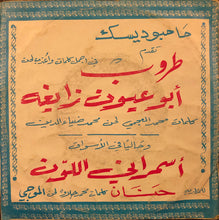 حا حبو ديسك
تقدم
في أجمل كلمات وأعذب لحن
طروب
أبو عيون زايغه
كلمات محمد العجمي لحن محمد ضياء الدين
وحاليًا في الأسواق
أسمراني اللون
حنان كلمات محمد حلاوة لحن الموجي